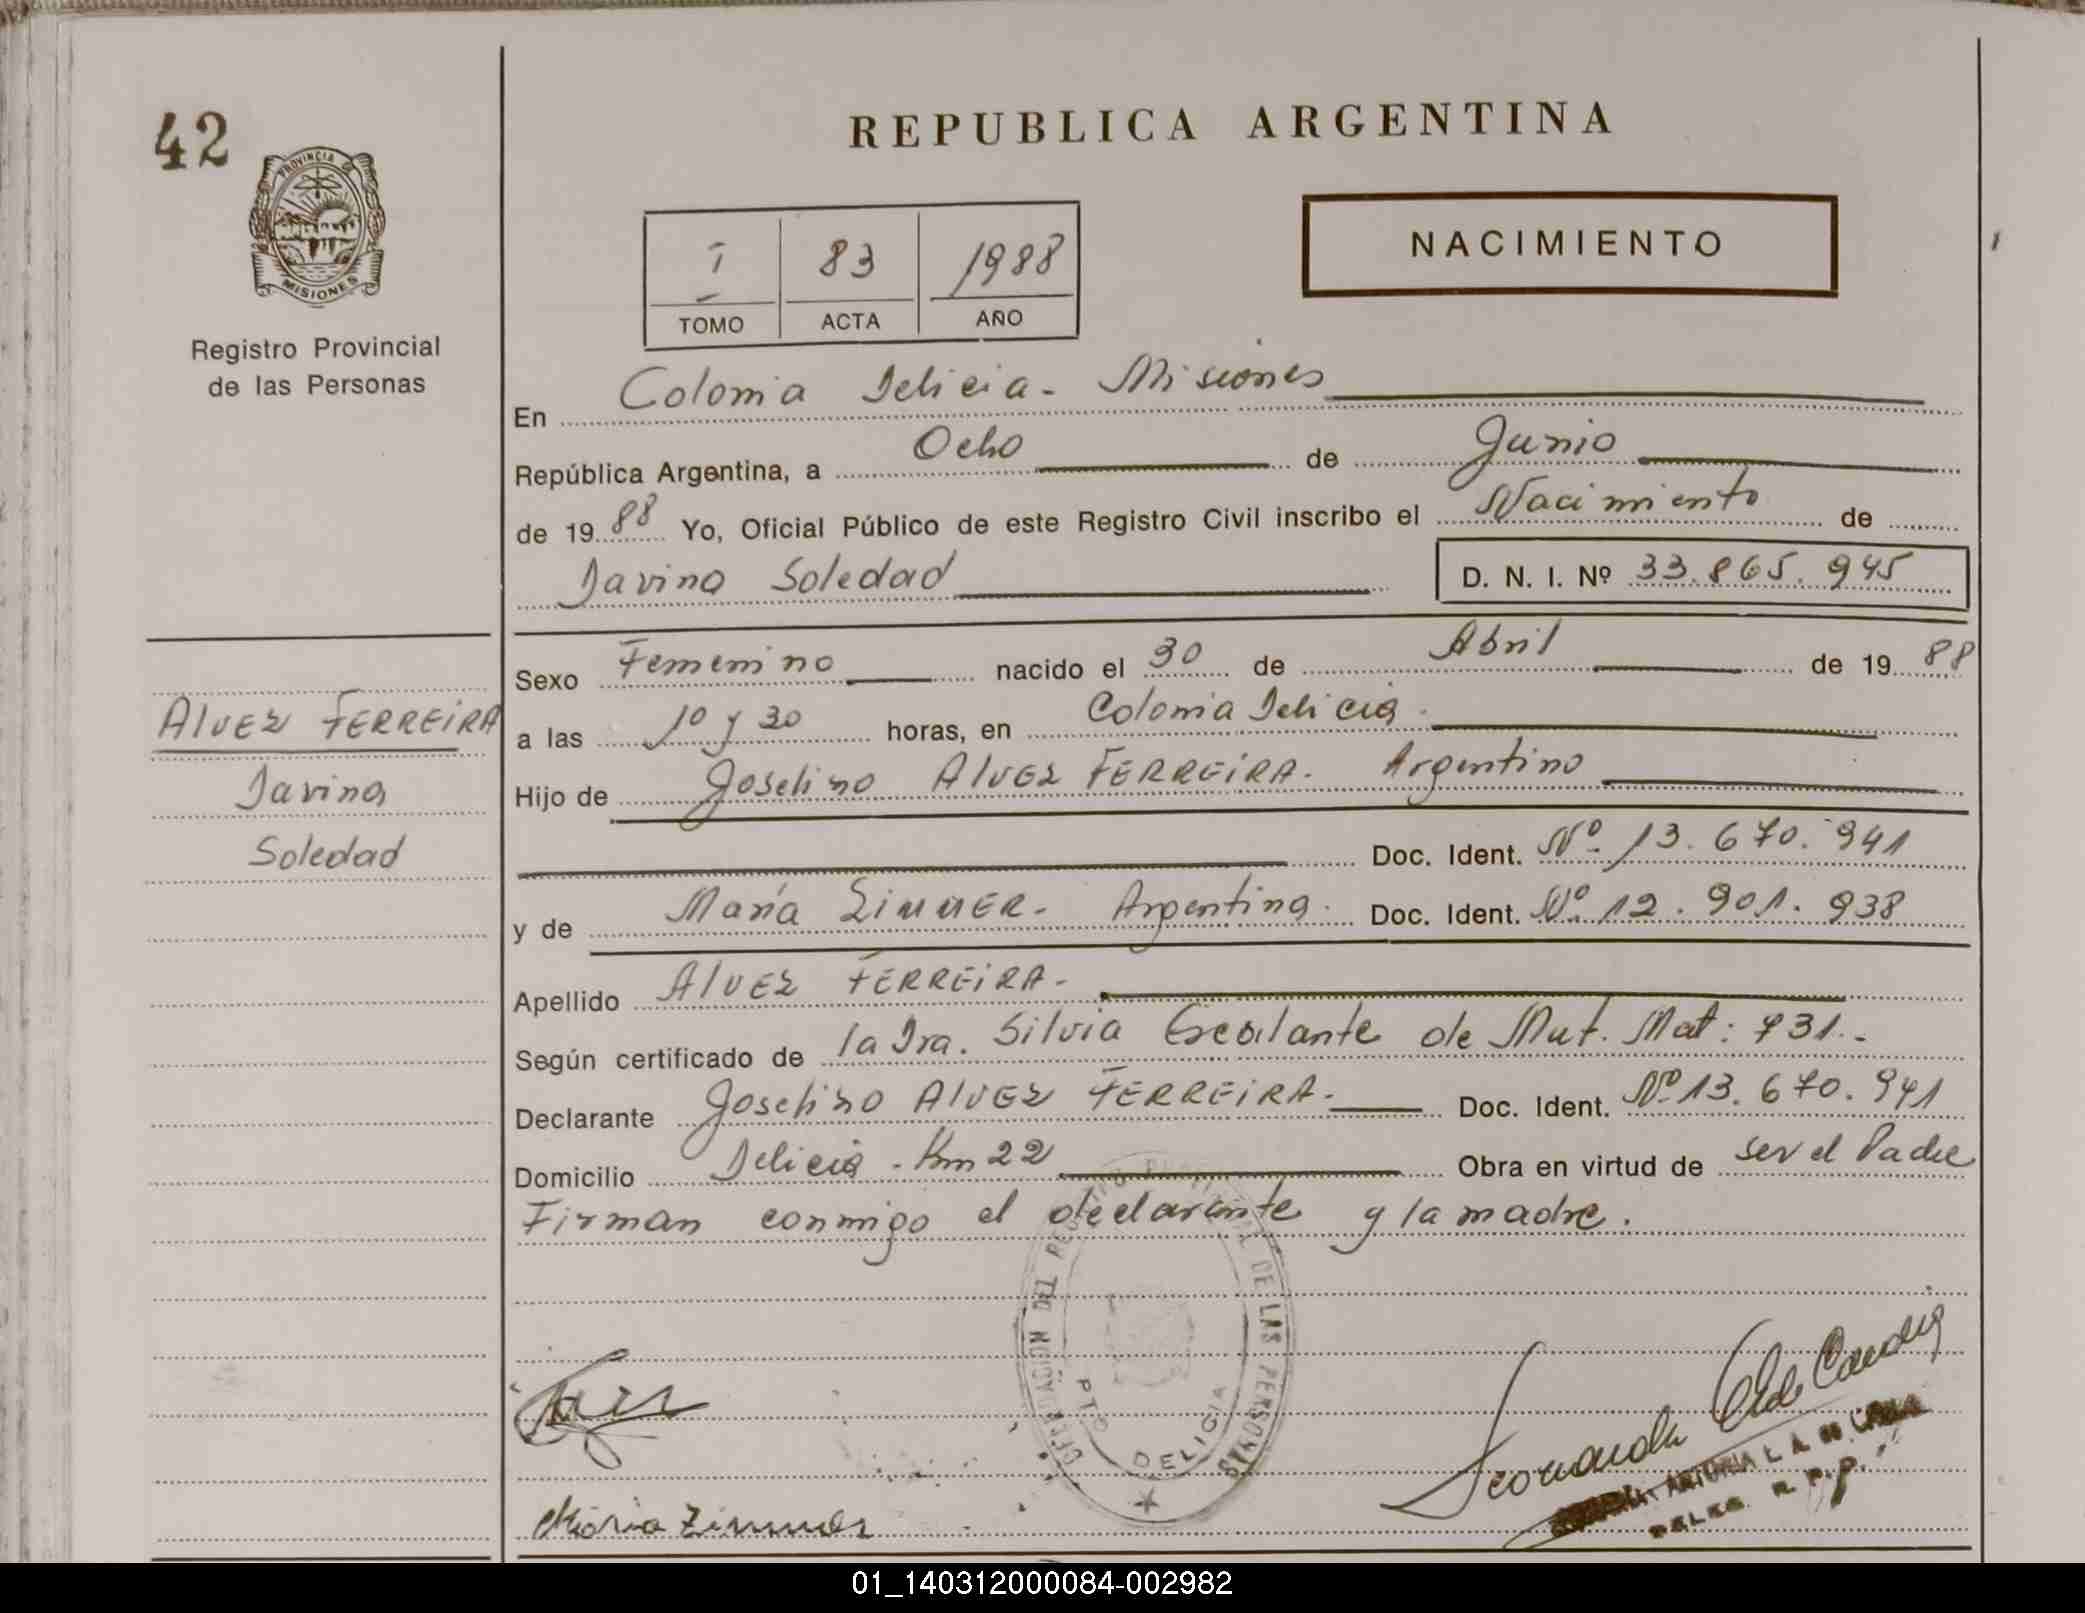 42
PROVINCIA DE
MISIONES
Registro Provincial
de las Personas
REPUBLICA ARGENTINA
I 83 1988
TOMO ACTA AÑO
NACIMIENTO
En Colonia Delicia - Misiones
República Argentina, a Ocho de Junio
de 19 88 Yo, Oficial Público de este Registro Civil inscribo el Nacimiento de
Davina Soledad D. N. I. Nº 33.865.945
Sexo Femenino nacido el 30 de Abril de 19 88
ALVEZ FERREIRA
Davina
Soledad
a las 10 y 30 horas, en Colonia Delicia.
Hijo de Joselino ALVEZ FERREIRA. Argentino
Doc. Ident. Nº 13.670.941
y de María ZIMMER - Argentina. Doc. Ident. Nº 12.901.938
Apellido ALVEZ FERREIRA -
Según certificado de la Dra. Silvia Escalante de Mut. Mat: 731.-
Declarante Joselino ALVEZ FERREIRA - Doc. Ident. Nº 13.670.941
Domicilio Delicia - Km 22 Obra en virtud de ser el Padre
Firman conmigo el declarante y la madre.
DEL REGISTRO PROVINCIAL DE LAS PERSONAS
PTO DELICIA
Maria Zimmer
R. P. P.
01_140312000084-002982